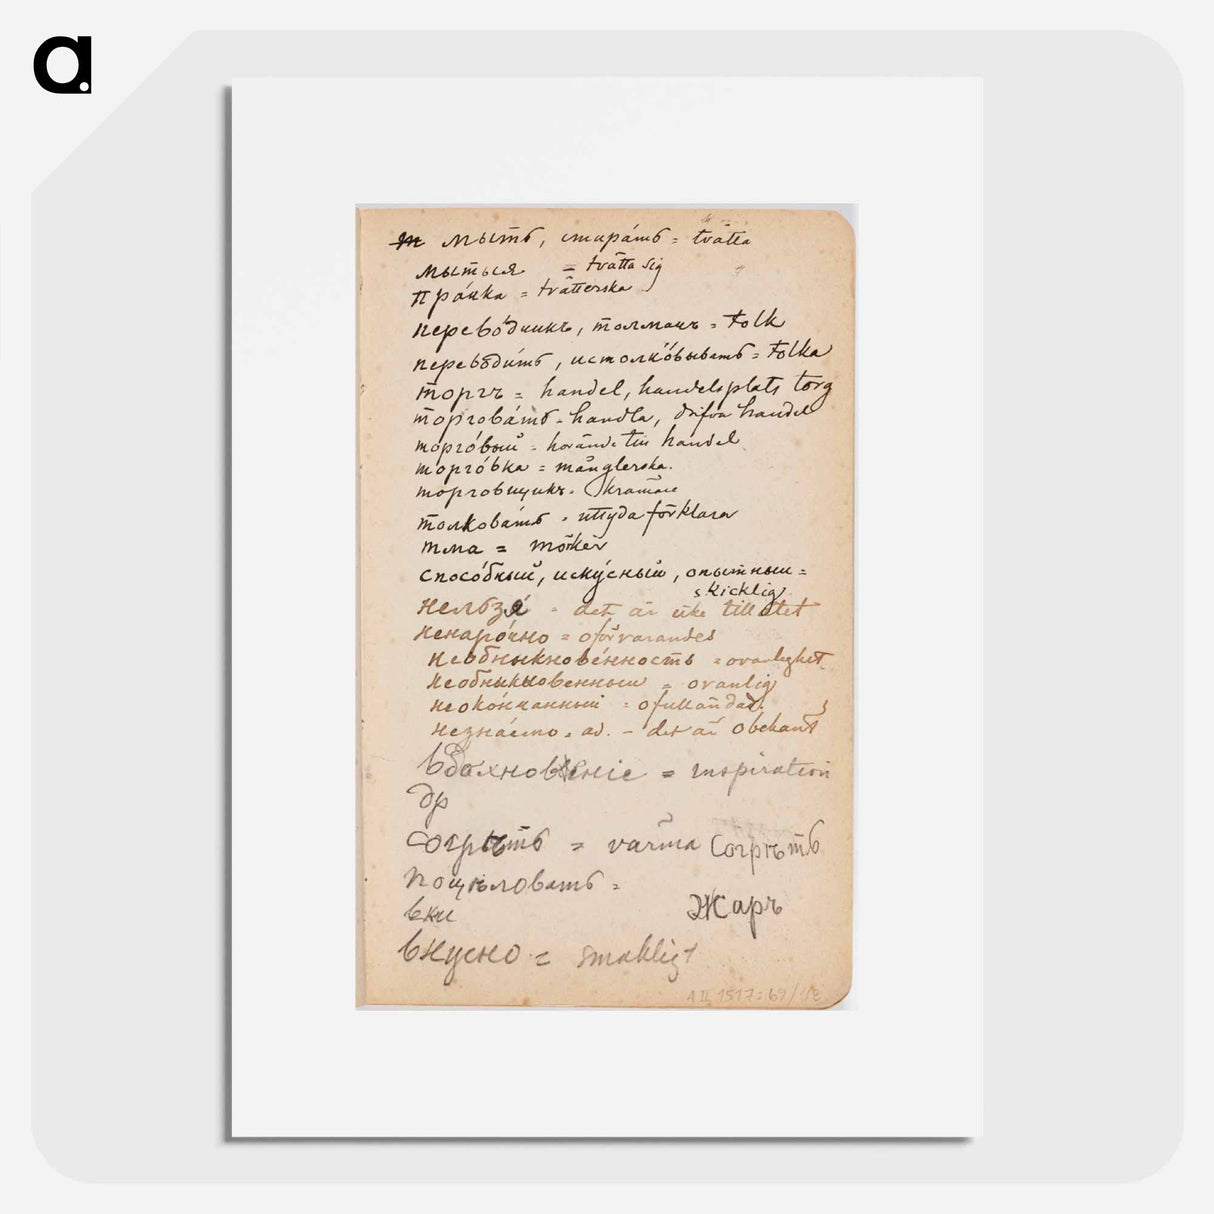 a.
мыть, стирáть = tvätta
мыться = tvätta sig
прáчка = tvätterska
перевóдчикъ, толмачъ = tolk
переводи́ть, истолкóвывать = tolka
торгъ = handel, handelsplats torg
торговáть = handla, drifva handel
торгóвый = hörande till handel
торгóвка = månglerska.
торговщикъ = krämare
толковáть = uttyda förklara
тма = mörker
спосóбный, искýсный, опытный =
skicklig.
нельзя́ = det är icke tillåtet
ненарóчно = oförvarandes
необыкновéнность = ovanlighet
необыкновенный = ovanlig
неокóнчанный = ofulländad.
незнáемо. ad. – det är obekant
вдохновеніе = inspiration
др
согрѣть = värma Согрѣть
поцѣловать =
вки Жаръ
вкусно = smakligt
A II 1517:69/